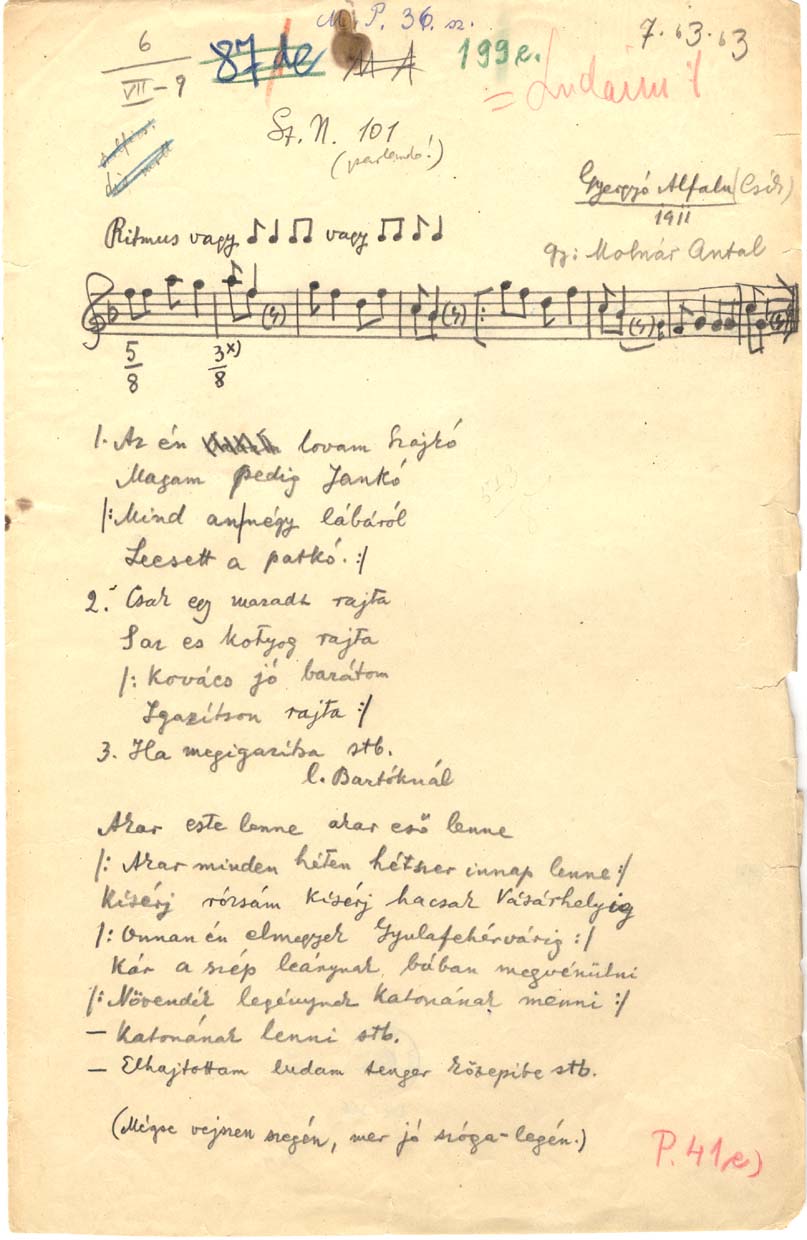 M. P. 36. sz.
6
VII - 9
87 de
M A
199e.
7. 63. 63
= Ludaim I
Sz. N. 101
(parlando!)
Gyergyó Alfalu (Csík)
1911
gy: Molnár Antal
Ritmus vagy ♪♩ ♫ vagy ♫ ♪♩
5/8
3/8 x)
1. Az én lovam Szajkó
Magam pedig Jankó
/: Mind an/négy lábáról
Leesett a patkó. :/
2. Csak egy maradt rajta
Saz es kotyog rajta
/: Kovács jó barátom
Igazítson rajta :/
3. Ha megigazítsa stb.
l. Bartóknál
Akar este lenne akar eső lenne
/: Akar minden héten hétszer innap lenne :/
Kisérj rózsám kisérj hacsak Vásárhelyig
/: Onnan én elmegyek Gyulafehérvárig :/
Kár a szép leánynak búban megvénülni
/: Növendék legénynek katonának menni :/
— Katonának lenni stb.
— Elhajtottam ludam tenger közepibe stb.
(Mégse vejszen szegén, mer jó szóga-legén.)
P. 41 e)